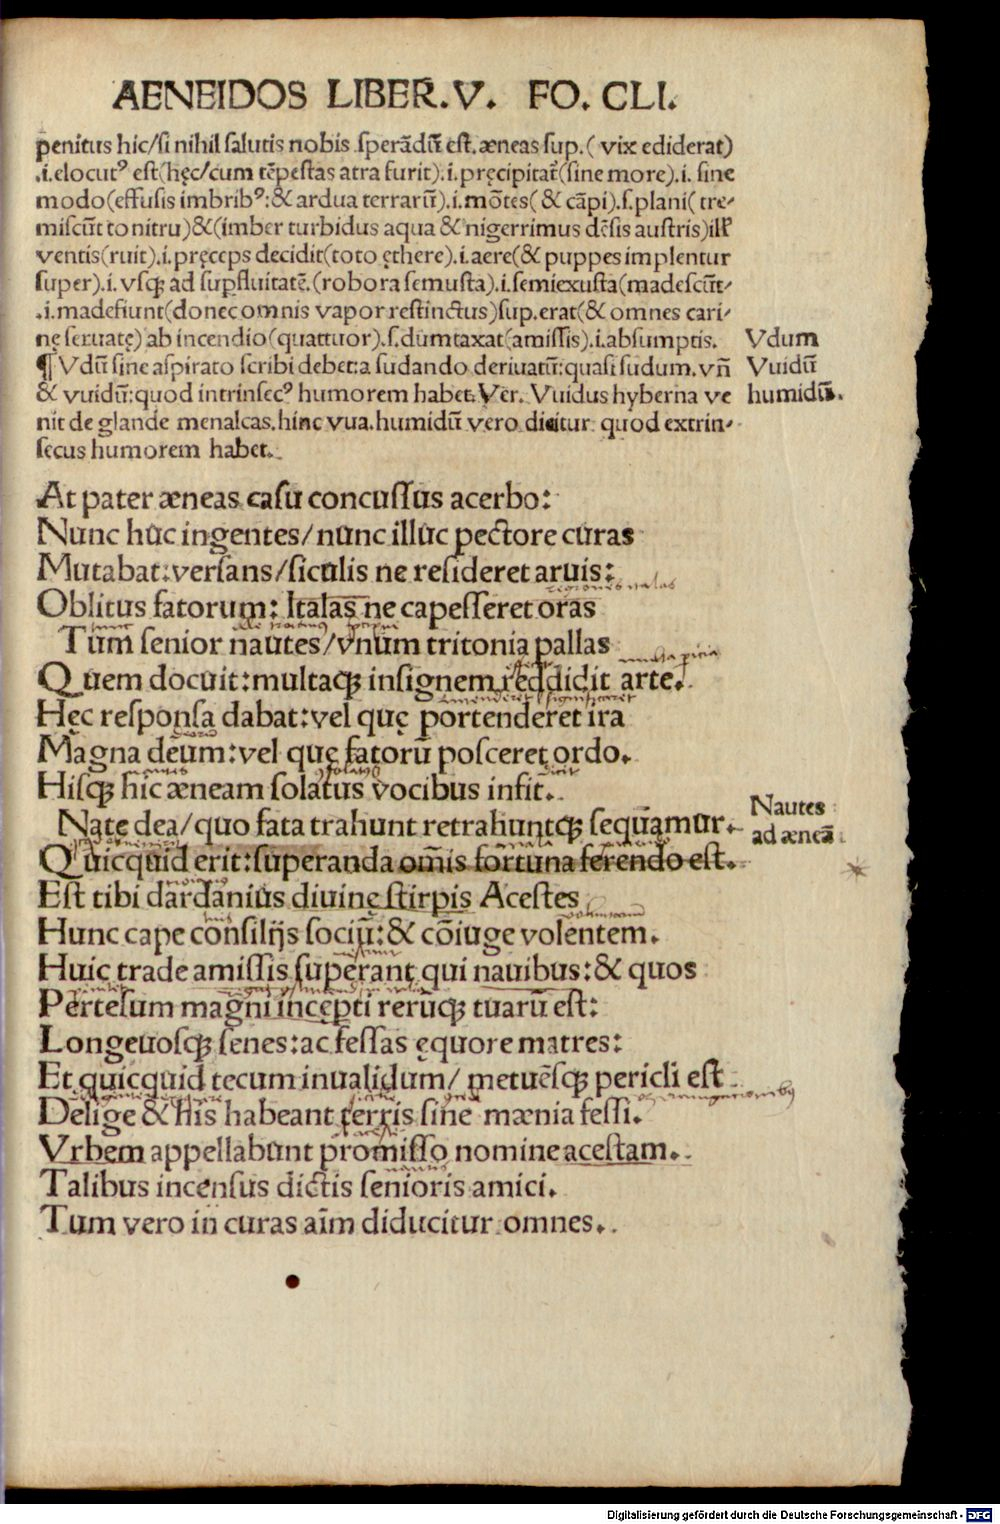 AENEIDOS LIBER. V. FO. CLI.
penitus hic/si nihil salutis nobis sperādū est. æneas sup. ( vix ediderat)
.i. elocutꝰ est(hęc/cum tēpestas atra furit). i. pręcipitat̄(sine more). i. sine
modo(effusis imbribꝰ: & ardua terrarū). i. mōtes( & cāpi). s. plani( tre-
miscūt tonitru)&(imber turbidus aqua & nigerrimus dēsis austris)
ventis(ruit). i. pręceps decidit(toto ęthere). i. aere(& puppes implentur
super). i. vsqꝫ ad suꝑfluitatē. (robora semusta). i. semiexusta(madescūt-
.i. madefiunt(donec omnis vapor restinctus)sup. erat(& omnes cari-
nę seruatę) ab incendio(quattuor). s. dumtaxat(amissis). i. absumptis.
Vdum
¶ Vdū sine aspirato scribi debet: a sudando deriuatū: quasi sudum. vn̄
Vuidū
& vuidū: quod intrinsecꝰ humorem habet. Ver. Vuidus hyberna ve
humidū.
nit de glande menalcas. hinc vua. humidū vero dicitur quod extrin-
secus humorem habet.
At pater æneas casu concussus acerbo:
Nunc huc ingentes/nunc illuc pectore curas
Mutabat: versans/siculis ne resideret aruis:
Oblitus fatorum: Italas ne capesseret oras
Tum senior nautes/vnum tritonia pallas
Quem docuit: multaqꝫ insignem reddidit arte.
Hęc responsa dabat: vel quę portenderet ira
Magna deum: vel quę fatorū posceret ordo.
Hisqꝫ hic æneam solatus vocibus infit.
Nate dea/quo fata trahunt retrahuntqꝫ sequamur.
Nautes
ad æneā
Quicquid erit: superanda om̄is fortuna ferendo est.
Est tibi dardanius diuinę stirpis Acestes
Hunc cape consilijs sociū: & cōiuge volentem.
Huic trade amissis superant qui nauibus: & quos
Pertesum magni incepti rerūqꝫ tuarū est:
Longeuosqꝫ senes: ac fessas ęquore matres:
Et quicquid tecum inualidum/ metuēsqꝫ pericli est
Delige & his habeant terris sine mænia fessi.
Vrbem appellabunt promisso nomine acestam.
Talibus incensus dictis senioris amici.
Tum vero in curas aīm diducitur omnes.
Digitalisierung gefördert durch die Deutsche Forschungsgemeinschaft - DFG